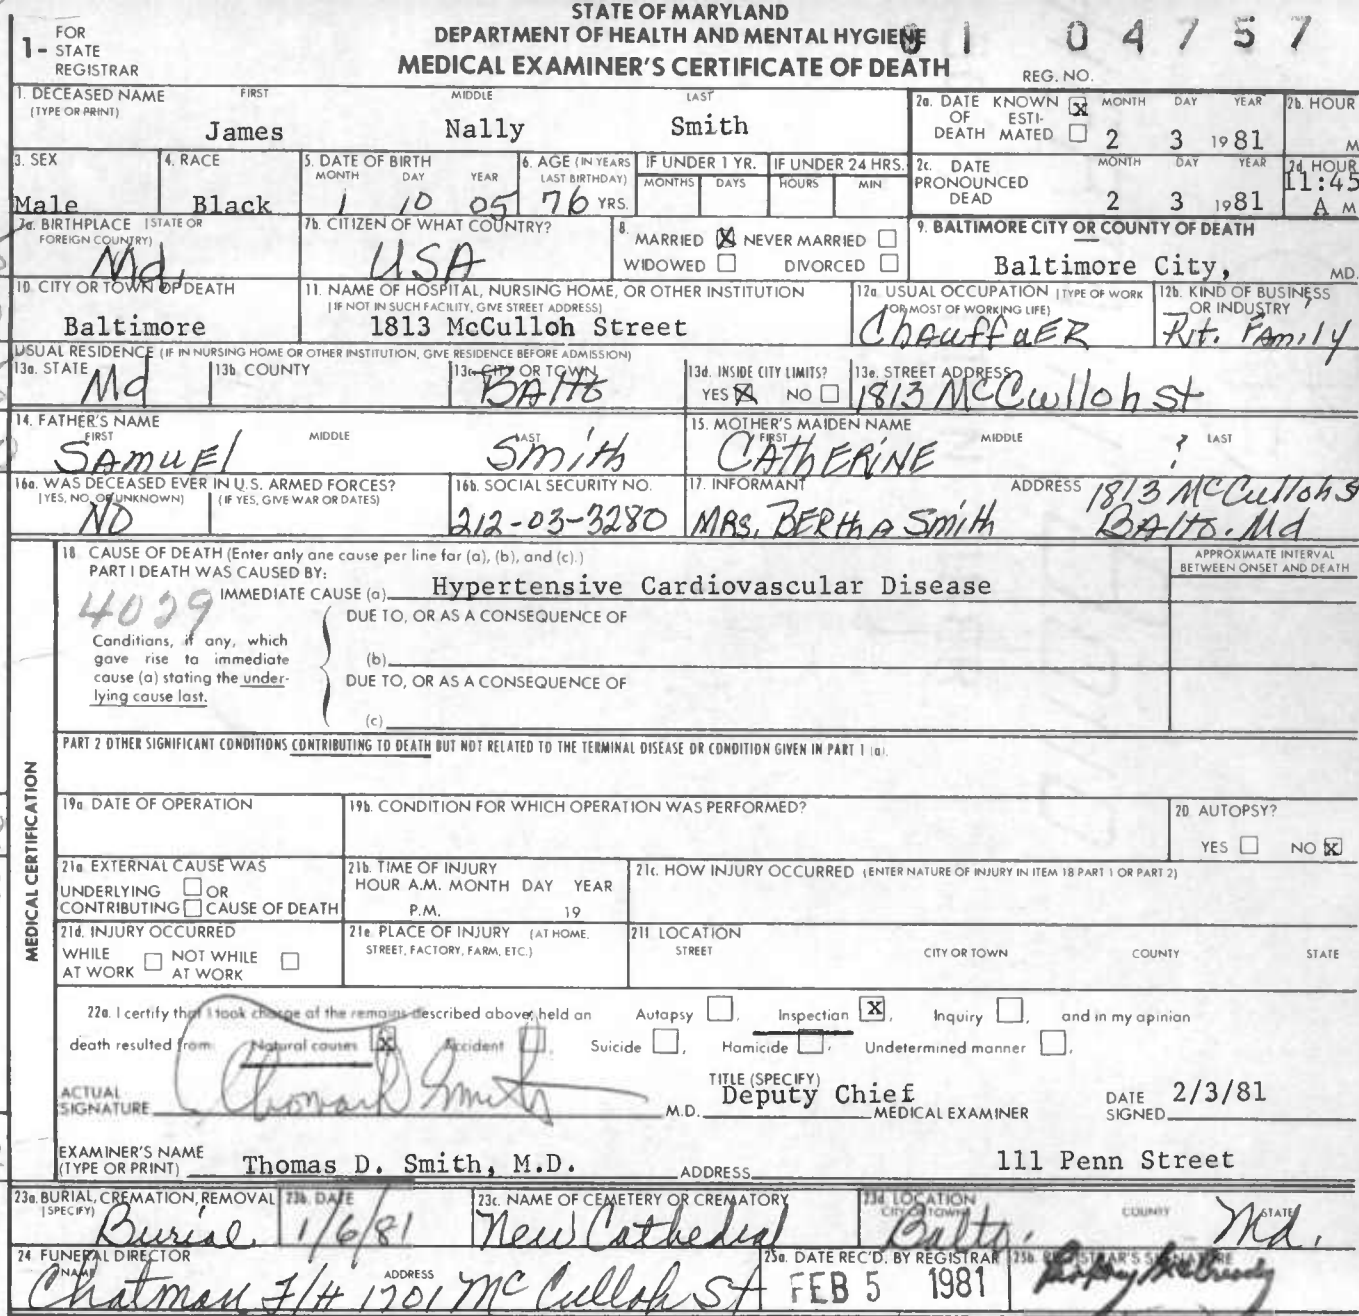 STATE OF MARYLAND
DEPARTMENT OF HEALTH AND MENTAL HYGIENE
MEDICAL EXAMINER'S CERTIFICATE OF DEATH
1- FOR STATE REGISTRAR
REG. NO. 81 04757
1. DECEASED NAME (TYPE OR PRINT) FIRST MIDDLE LAST
James Nally Smith
2a. DATE OF DEATH KNOWN X ESTIMATED MONTH DAY YEAR
2 3 1981
2b. HOUR M
3. SEX Male
4. RACE Black
5. DATE OF BIRTH MONTH DAY YEAR
1 10 05
6. AGE (IN YEARS LAST BIRTHDAY) 76 YRS.
IF UNDER 1 YR. MONTHS DAYS
IF UNDER 24 HRS. HOURS MIN
2c. DATE PRONOUNCED DEAD MONTH DAY YEAR
2 3 1981
2d. HOUR 11:45 A M
7a. BIRTHPLACE (STATE OR FOREIGN COUNTRY) Md.
7b. CITIZEN OF WHAT COUNTRY? USA
8. MARRIED X NEVER MARRIED
WIDOWED DIVORCED
9. BALTIMORE CITY OR COUNTY OF DEATH
Baltimore City, MD.
10. CITY OR TOWN OF DEATH
Baltimore
11. NAME OF HOSPITAL, NURSING HOME, OR OTHER INSTITUTION
(IF NOT IN SUCH FACILITY, GIVE STREET ADDRESS)
1813 McCulloh Street
12a. USUAL OCCUPATION (TYPE OF WORK FOR MOST OF WORKING LIFE)
ChauffaER
12b. KIND OF BUSINESS OR INDUSTRY
Pvt. Family
USUAL RESIDENCE (IF IN NURSING HOME OR OTHER INSTITUTION, GIVE RESIDENCE BEFORE ADMISSION)
13a. STATE Md
13b. COUNTY
13c. CITY OR TOWN BAlto
13d. INSIDE CITY LIMITS? YES X NO
13e. STREET ADDRESS
1813 McCulloh St
14. FATHER'S NAME FIRST MIDDLE LAST
SAMUEl Smith
15. MOTHER'S MAIDEN NAME FIRST MIDDLE LAST
CAThERINE ?
16a. WAS DECEASED EVER IN U.S. ARMED FORCES?
(YES, NO, OR UNKNOWN) (IF YES, GIVE WAR OR DATES)
NO
16b. SOCIAL SECURITY NO.
212-03-3280
17. INFORMANT ADDRESS
MRS. BERthA Smith 1813 McCulloh St
BAlto. Md
MEDICAL CERTIFICATION
18. CAUSE OF DEATH (Enter only one cause per line for (a), (b), and (c).)
APPROXIMATE INTERVAL BETWEEN ONSET AND DEATH
PART I DEATH WAS CAUSED BY:
IMMEDIATE CAUSE (a) Hypertensive Cardiovascular Disease
4029
DUE TO, OR AS A CONSEQUENCE OF
Conditions, if any, which
gave rise to immediate
cause (a) stating the under-
lying cause last.
(b)
DUE TO, OR AS A CONSEQUENCE OF
(c)
PART 2 OTHER SIGNIFICANT CONDITIONS CONTRIBUTING TO DEATH BUT NOT RELATED TO THE TERMINAL DISEASE OR CONDITION GIVEN IN PART 1 (a).
19a. DATE OF OPERATION
19b. CONDITION FOR WHICH OPERATION WAS PERFORMED?
20. AUTOPSY?
YES NO X
21a. EXTERNAL CAUSE WAS
UNDERLYING OR
CONTRIBUTING CAUSE OF DEATH
21b. TIME OF INJURY
HOUR A.M. MONTH DAY YEAR
P.M. 19
21c. HOW INJURY OCCURRED (ENTER NATURE OF INJURY IN ITEM 18 PART 1 OR PART 2)
21d. INJURY OCCURRED
WHILE AT WORK NOT WHILE AT WORK
21e. PLACE OF INJURY (AT HOME, STREET, FACTORY, FARM, ETC.)
21f. LOCATION
STREET CITY OR TOWN COUNTY STATE
22a. I certify that I took charge of the remains described above, held an Autopsy , Inspection X , Inquiry , and in my opinion
death resulted from Natural causes X Accident , Suicide , Homicide , Undetermined manner ,
ACTUAL SIGNATURE Thomas D Smith M.D.
TITLE (SPECIFY) Deputy Chief MEDICAL EXAMINER
DATE SIGNED 2/3/81
EXAMINER'S NAME (TYPE OR PRINT) Thomas D. Smith, M.D.
ADDRESS 111 Penn Street
23a. BURIAL, CREMATION, REMOVAL (SPECIFY)
Burial
23b. DATE
1/6/81
23c. NAME OF CEMETERY OR CREMATORY
New Cathedral
23d. LOCATION CITY OR TOWN COUNTY STATE
Balto. Md.
24. FUNERAL DIRECTOR NAME ADDRESS
Chatman F/H 1701 McCulloh St
25a. DATE REC'D. BY REGISTRAR
FEB 5 1981
25b. REGISTRAR'S SIGNATURE